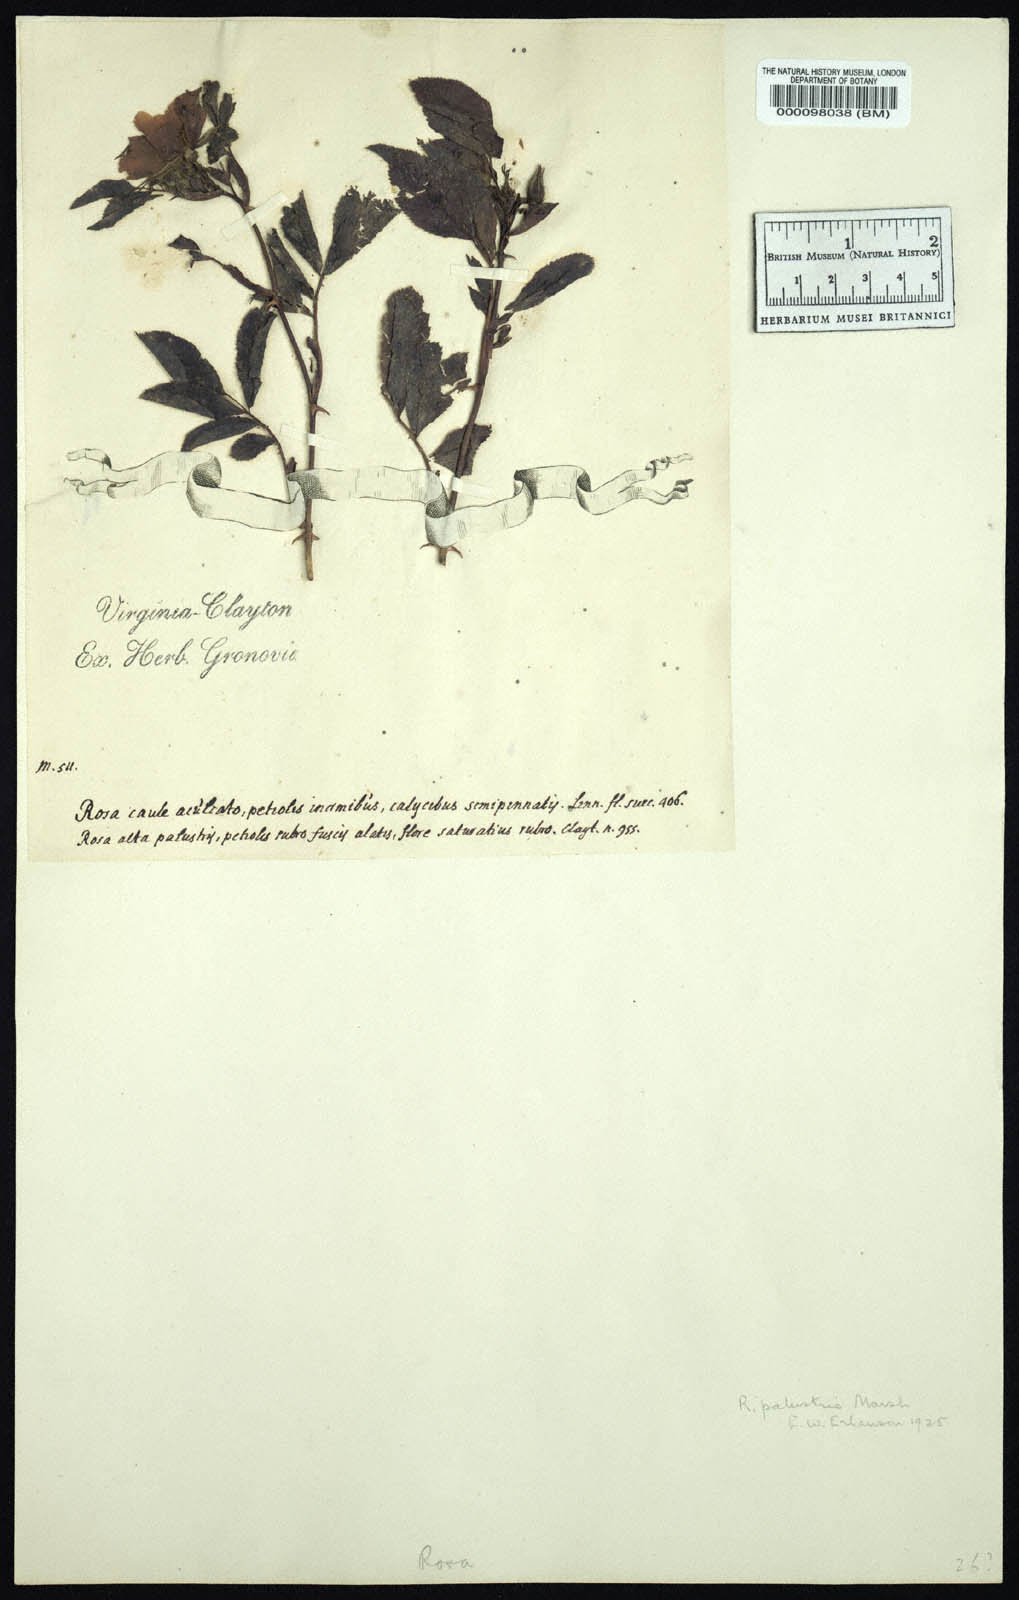 THE NATURAL HISTORY MUSEUM, LONDON
DEPARTMENT OF BOTANY
000098038 (BM)
1 2
BRITISH MUSEUM (NATURAL HISTORY)
1 2 3 4 5
HERBARIUM MUSEI BRITANNICI
Virginia-Clayton
Ex. Herb. Gronovii
m. 511.
Rosa caule aculeato, petiolis inermibus, calycibus semipinnatis. Linn. fl. suec. 406.
Rosa alta palustris, petiolis rubro fuscis alatis, flore saturatius rubro. Clayt. n. 955.
R. palustris Marsh
E. W. Erlanson 1925
Rosa
26?